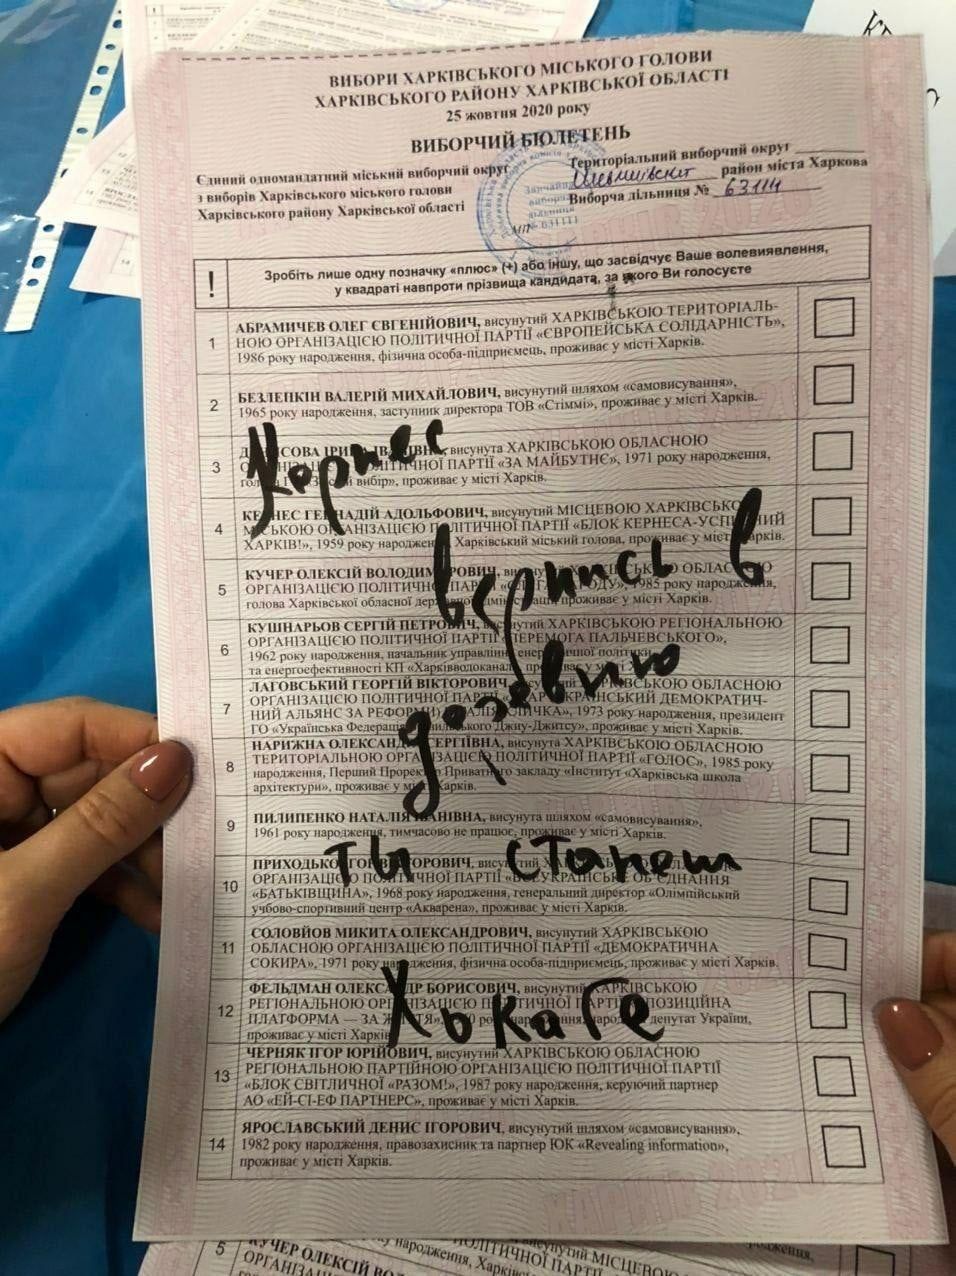 ВИБОРИ ХАРКІВСЬКОГО МІСЬКОГО ГОЛОВИ
ХАРКІВСЬКОГО РАЙОНУ ХАРКІВСЬКОЇ ОБЛАСТІ
25 жовтня 2020 року
ВИБОРЧИЙ БЮЛЕТЕНЬ
Єдиний одномандатний міський виборчий округ
з виборів Харківського міського голови
Харківського району Харківської області
Територіальний виборчий округ
район міста Харкова
Виборча дільниця №
МП
! Зробіть лише одну позначку «плюс» (+) або іншу, що засвідчує Ваше волевиявлення,
у квадраті навпроти прізвища кандидата, за якого Ви голосуєте
1 АБРАМИЧЕВ ОЛЕГ ЄВГЕНІЙОВИЧ, висунутий ХАРКІВСЬКОЮ ТЕРИТОРІАЛЬ-
НОЮ ОРГАНІЗАЦІЄЮ ПОЛІТИЧНОЇ ПАРТІЇ «ЄВРОПЕЙСЬКА СОЛІДАРНІСТЬ»,
1986 року народження, фізична особа-підприємець, проживає у місті Харків.
2 БЕЗЛЕПКІН ВАЛЕРІЙ МИХАЙЛОВИЧ, висунутий шляхом «самовисування»,
1965 року народження, заступник директора ТОВ «Стіммі», проживає у місті Харків.
3 висунута ХАРКІВСЬКОЮ ОБЛАСНОЮ
ПОЛІТИЧНОЇ ПАРТІЇ «ЗА МАЙБУТНЄ», 1971 року народження,
вибір», проживає у місті Харків.
4 КЕРНЕС ГЕННАДІЙ АДОЛЬФОВИЧ, висунутий МІСЦЕВОЮ ХАРКІВСЬКОЮ
МІСЬКОЮ ОРГАНІЗАЦІЄЮ ПОЛІТИЧНОЇ ПАРТІЇ «БЛОК КЕРНЕСА-УСПІШНИЙ
ХАРКІВ!», 1959 року народження, Харківський міський голова, проживає у місті Харків.
5 КУЧЕР ОЛЕКСІЙ ВОЛОДИМИРОВИЧ, висунутий ХАРКІВСЬКОЮ ОБЛАСНОЮ
ОРГАНІЗАЦІЄЮ ПОЛІТИЧНОЇ ПАРТІЇ 1985 року народження,
голова Харківської обласної державної адміністрації, проживає у місті Харків.
6 КУШНАРЬОВ СЕРГІЙ ПЕТРОВИЧ, висунутий ХАРКІВСЬКОЮ РЕГІОНАЛЬНОЮ
ОРГАНІЗАЦІЄЮ ПОЛІТИЧНОЇ ПАРТІЇ «ПЕРЕМОГА ПАЛЬЧЕВСЬКОГО»,
1962 року народження, начальник управління енергетичної політики
та енергоефективності КП «Харківводоканал», проживає у місті Харків.
7 ЛАГОВСЬКИЙ ГЕОРГІЙ ВІКТОРОВИЧ, ХАРКІВСЬКОЮ ОБЛАСНОЮ
ОРГАНІЗАЦІЄЮ ПОЛІТИЧНОЇ ПАРТІЇ ДЕМОКРАТИЧ-
НИЙ АЛЬЯНС ЗА РЕФОРМИ) 1973 року народження, президент
ГО «Українська Федерація Бразильського Джиу-Джитсу», проживає у місті Харків.
8 НАРИЖНА ОЛЕКСАНДРА СЕРГІЇВНА, висунута ХАРКІВСЬКОЮ ОБЛАСНОЮ
ТЕРИТОРІАЛЬНОЮ ОРГАНІЗАЦІЄЮ ПОЛІТИЧНОЇ ПАРТІЇ «ГОЛОС», 1985 року
народження, Перший Проректор Приватного закладу «Інститут «Харківська школа
архітектури», проживає у місті Харків.
9 ПИЛИПЕНКО НАТАЛІЯ ІВАНІВНА, висунута шляхом «самовисування»,
1961 року народження, тимчасово не працює, проживає у місті Харків.
10 ПРИХОДЬКО ІГОР ВІКТОРОВИЧ, висунутий ХАРКІВСЬКОЮ ОБЛАСНОЮ
ОРГАНІЗАЦІЄЮ ПОЛІТИЧНОЇ ПАРТІЇ «ВСЕУКРАЇНСЬКЕ ОБ'ЄДНАННЯ
«БАТЬКІВЩИНА», 1968 року народження, генеральний директор «Олімпійський
учбово-спортивний центр «Акварена», проживає у місті Харків.
11 СОЛОВЙОВ МИКИТА ОЛЕКСАНДРОВИЧ, висунутий ХАРКІВСЬКОЮ
ОБЛАСНОЮ ОРГАНІЗАЦІЄЮ ПОЛІТИЧНОЇ ПАРТІЇ «ДЕМОКРАТИЧНА
СОКИРА», 1971 року народження, фізична особа-підприємець, проживає у місті Харків.
12 ФЕЛЬДМАН ОЛЕКСАНДР БОРИСОВИЧ, висунутий ХАРКІВСЬКОЮ
РЕГІОНАЛЬНОЮ ОРГАНІЗАЦІЄЮ ПОЛІТИЧНОЇ ПАРТІЇ «ОПОЗИЦІЙНА
ПЛАТФОРМА — ЗА ЖИТТЯ», народження, депутат України,
проживає у місті Харків.
13 ЧЕРНЯК ІГОР ЮРІЙОВИЧ, висунутий ХАРКІВСЬКОЮ ОБЛАСНОЮ
РЕГІОНАЛЬНОЮ ПАРТІЙНОЮ ОРГАНІЗАЦІЄЮ ПОЛІТИЧНОЇ ПАРТІЇ
«БЛОК СВІТЛИЧНОЇ «РАЗОМ!», 1987 року народження, керуючий партнер
АО «ЕЙ-СІ-ЕФ ПАРТНЕРС», проживає у місті Харків.
14 ЯРОСЛАВСЬКИЙ ДЕНИС ІГОРОВИЧ, висунутий шляхом «самовисування»,
1982 року народження, правозахисник та партнер ЮК «Revealing information»,
проживає у місті Харків.
Кернес
вернись в
деревню
ты станеш
Хокаге
5 КУЧЕР ОЛЕКСІЙ